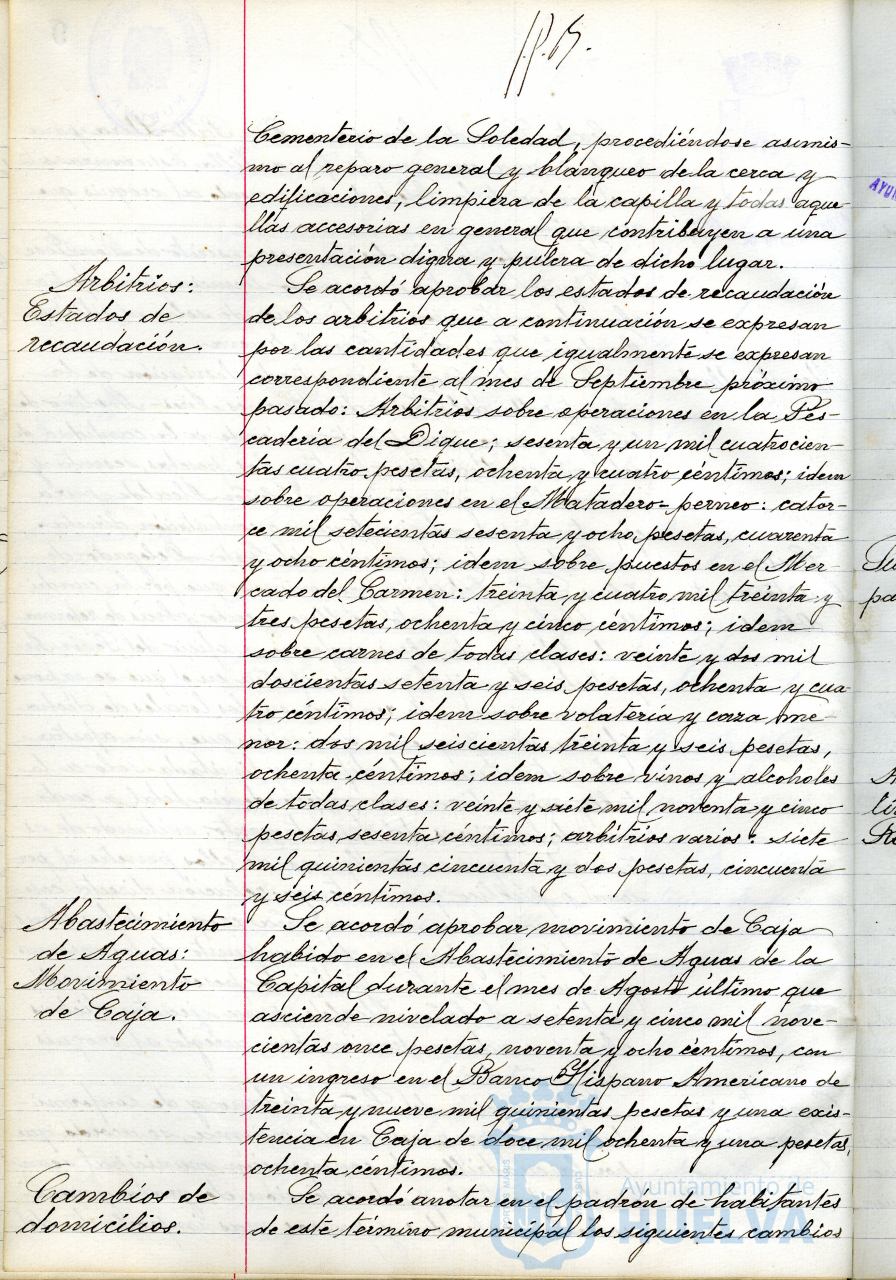 Cementerio de la Soledad, procediéndose asimis-
mo al reparo general y blanqueo de la cerca y
edificaciones, limpiera de la capilla y todas aque
llas accesorias en general que contribuyen a una
presentación digna y pulcra de dicho lugar.
Arbitrios:
Estados de
recaudación.
Se acordó aprobar los estados de recaudación
de los arbitrios que a continuación se expresan
por las cantidades que igualmente se expresan
correspondiente al mes de Septiembre próximo
pasado: Arbitrios sobre operaciones en la Pes-
cadería del Dique; sesenta y un mil cuatrocien-
tas cuatro pesetas, ochenta y cuatro céntimos; idem
sobre operaciones en el Matadero-perneo: cator-
ce mil setecientas sesenta y ocho pesetas, cuarenta
y ocho céntimos; idem sobre puestos en el Mer
cado del Carmen: treinta y cuatro mil treinta y
tres pesetas, ochenta y cinco céntimos; idem
sobre carnes de todas clases: veinte y dos mil
doscientas setenta y seis pesetas, ochenta y cua-
tro céntimos; idem sobre volatería y caza me
nor: dos mil seiscientas treinta y seis pesetas,
ochenta céntimos; idem sobre vinos y alcoholes
de todas clases: veinte y siete mil noventa y cinco
pesetas sesenta céntimos; arbitrios varios: siete
mil quinientas cincuenta y dos pesetas, cincuenta
y seis céntimos.
Abastecimiento
de Aguas:
Movimiento
de Caja.
Se acordó aprobar movimiento de Caja
habido en el Abastecimiento de Aguas de la
Capital durante el mes de Agosto último que
asciende nivelado a setenta y cinco mil nove-
cientas once pesetas, noventa y ocho céntimos, con
un ingreso en el Banco Hispano Americano de
treinta y nueve mil quinientas pesetas y una exis-
tencia en Caja de doce mil ochenta y una pesetas,
ochenta céntimos.
Cambios de
domicilios.
Se acordó anotar en el padrón de habitantes
de este término municipal los siguientes cambios
Ayuntamiento de
HUELVA